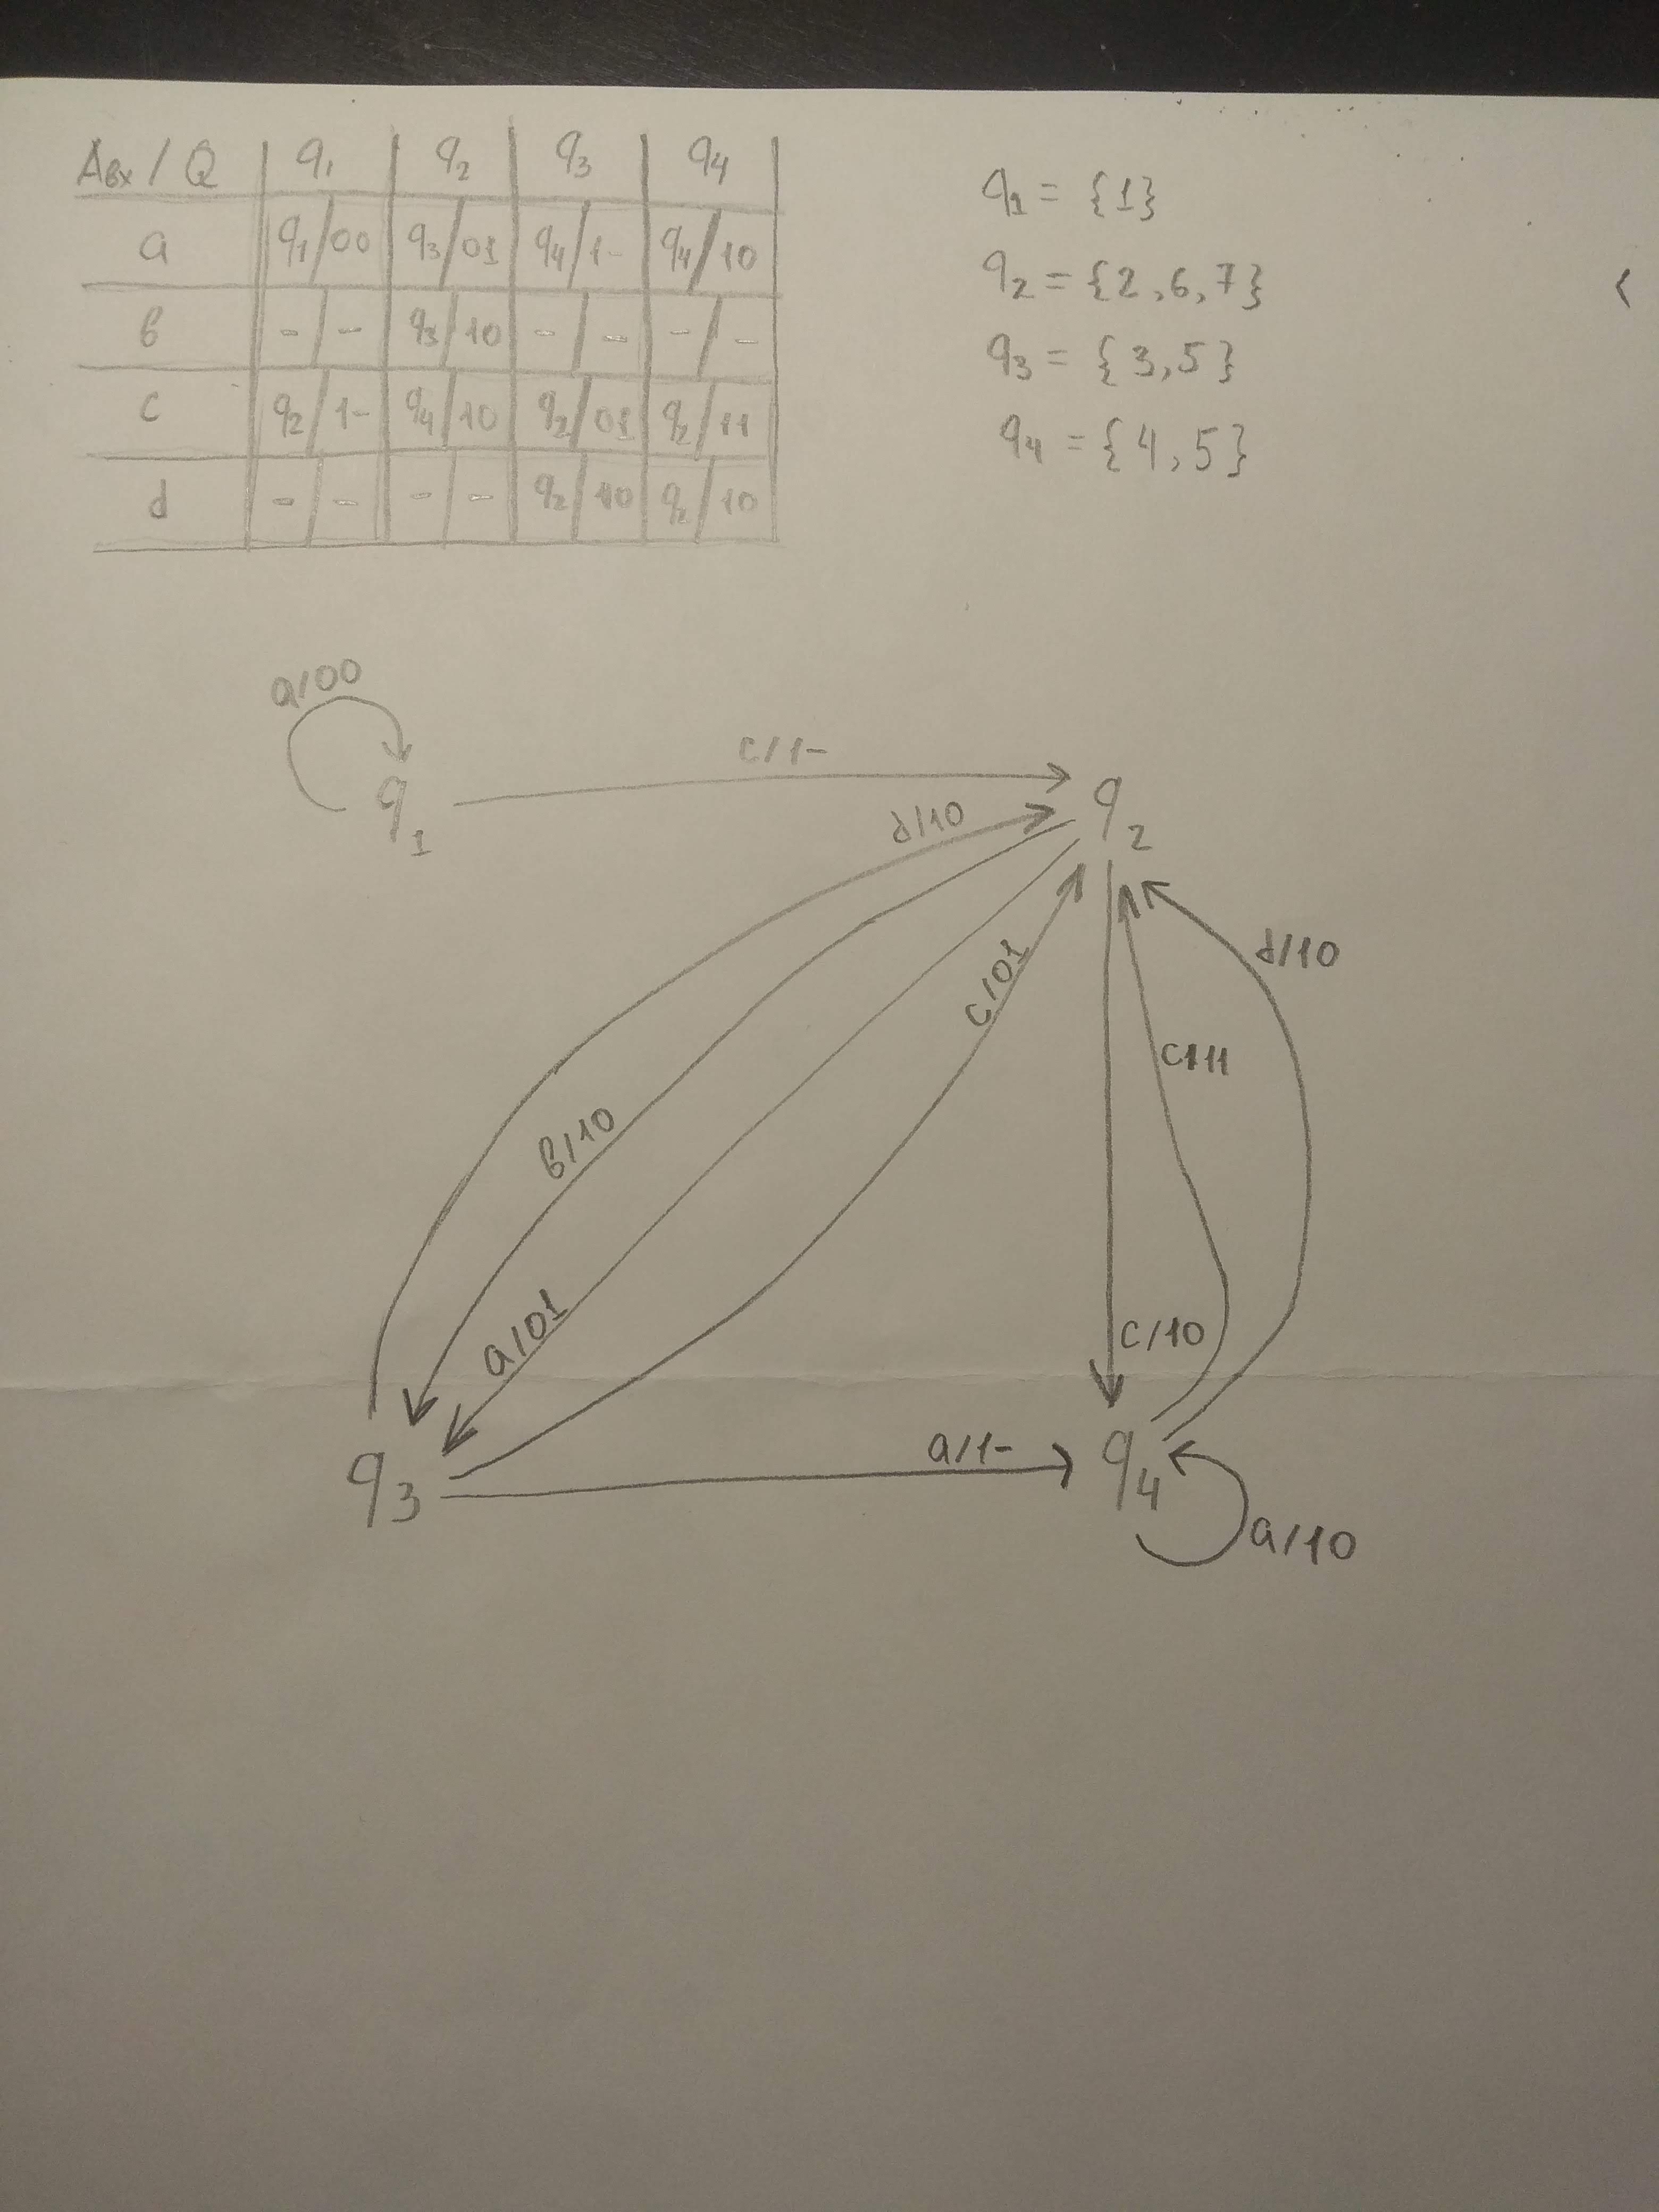 Aвх / Q q1 q2 q3 q4
a q1/00 q3/01 q4/1- q4/10
в -/- q3/10 -/- -/-
c q2/1- q4/10 q2/01 q2/11
d -/- -/- q2/10 q2/10
q1 = {1}
q2 = {2,6,7}
q3 = {3,5}
q4 = {4,5}
a/00
c/1-
q1
q2
d/10
c/01
d/10
c/11
в/10
a/01
c/10
q3
a/1-
q4
a/10